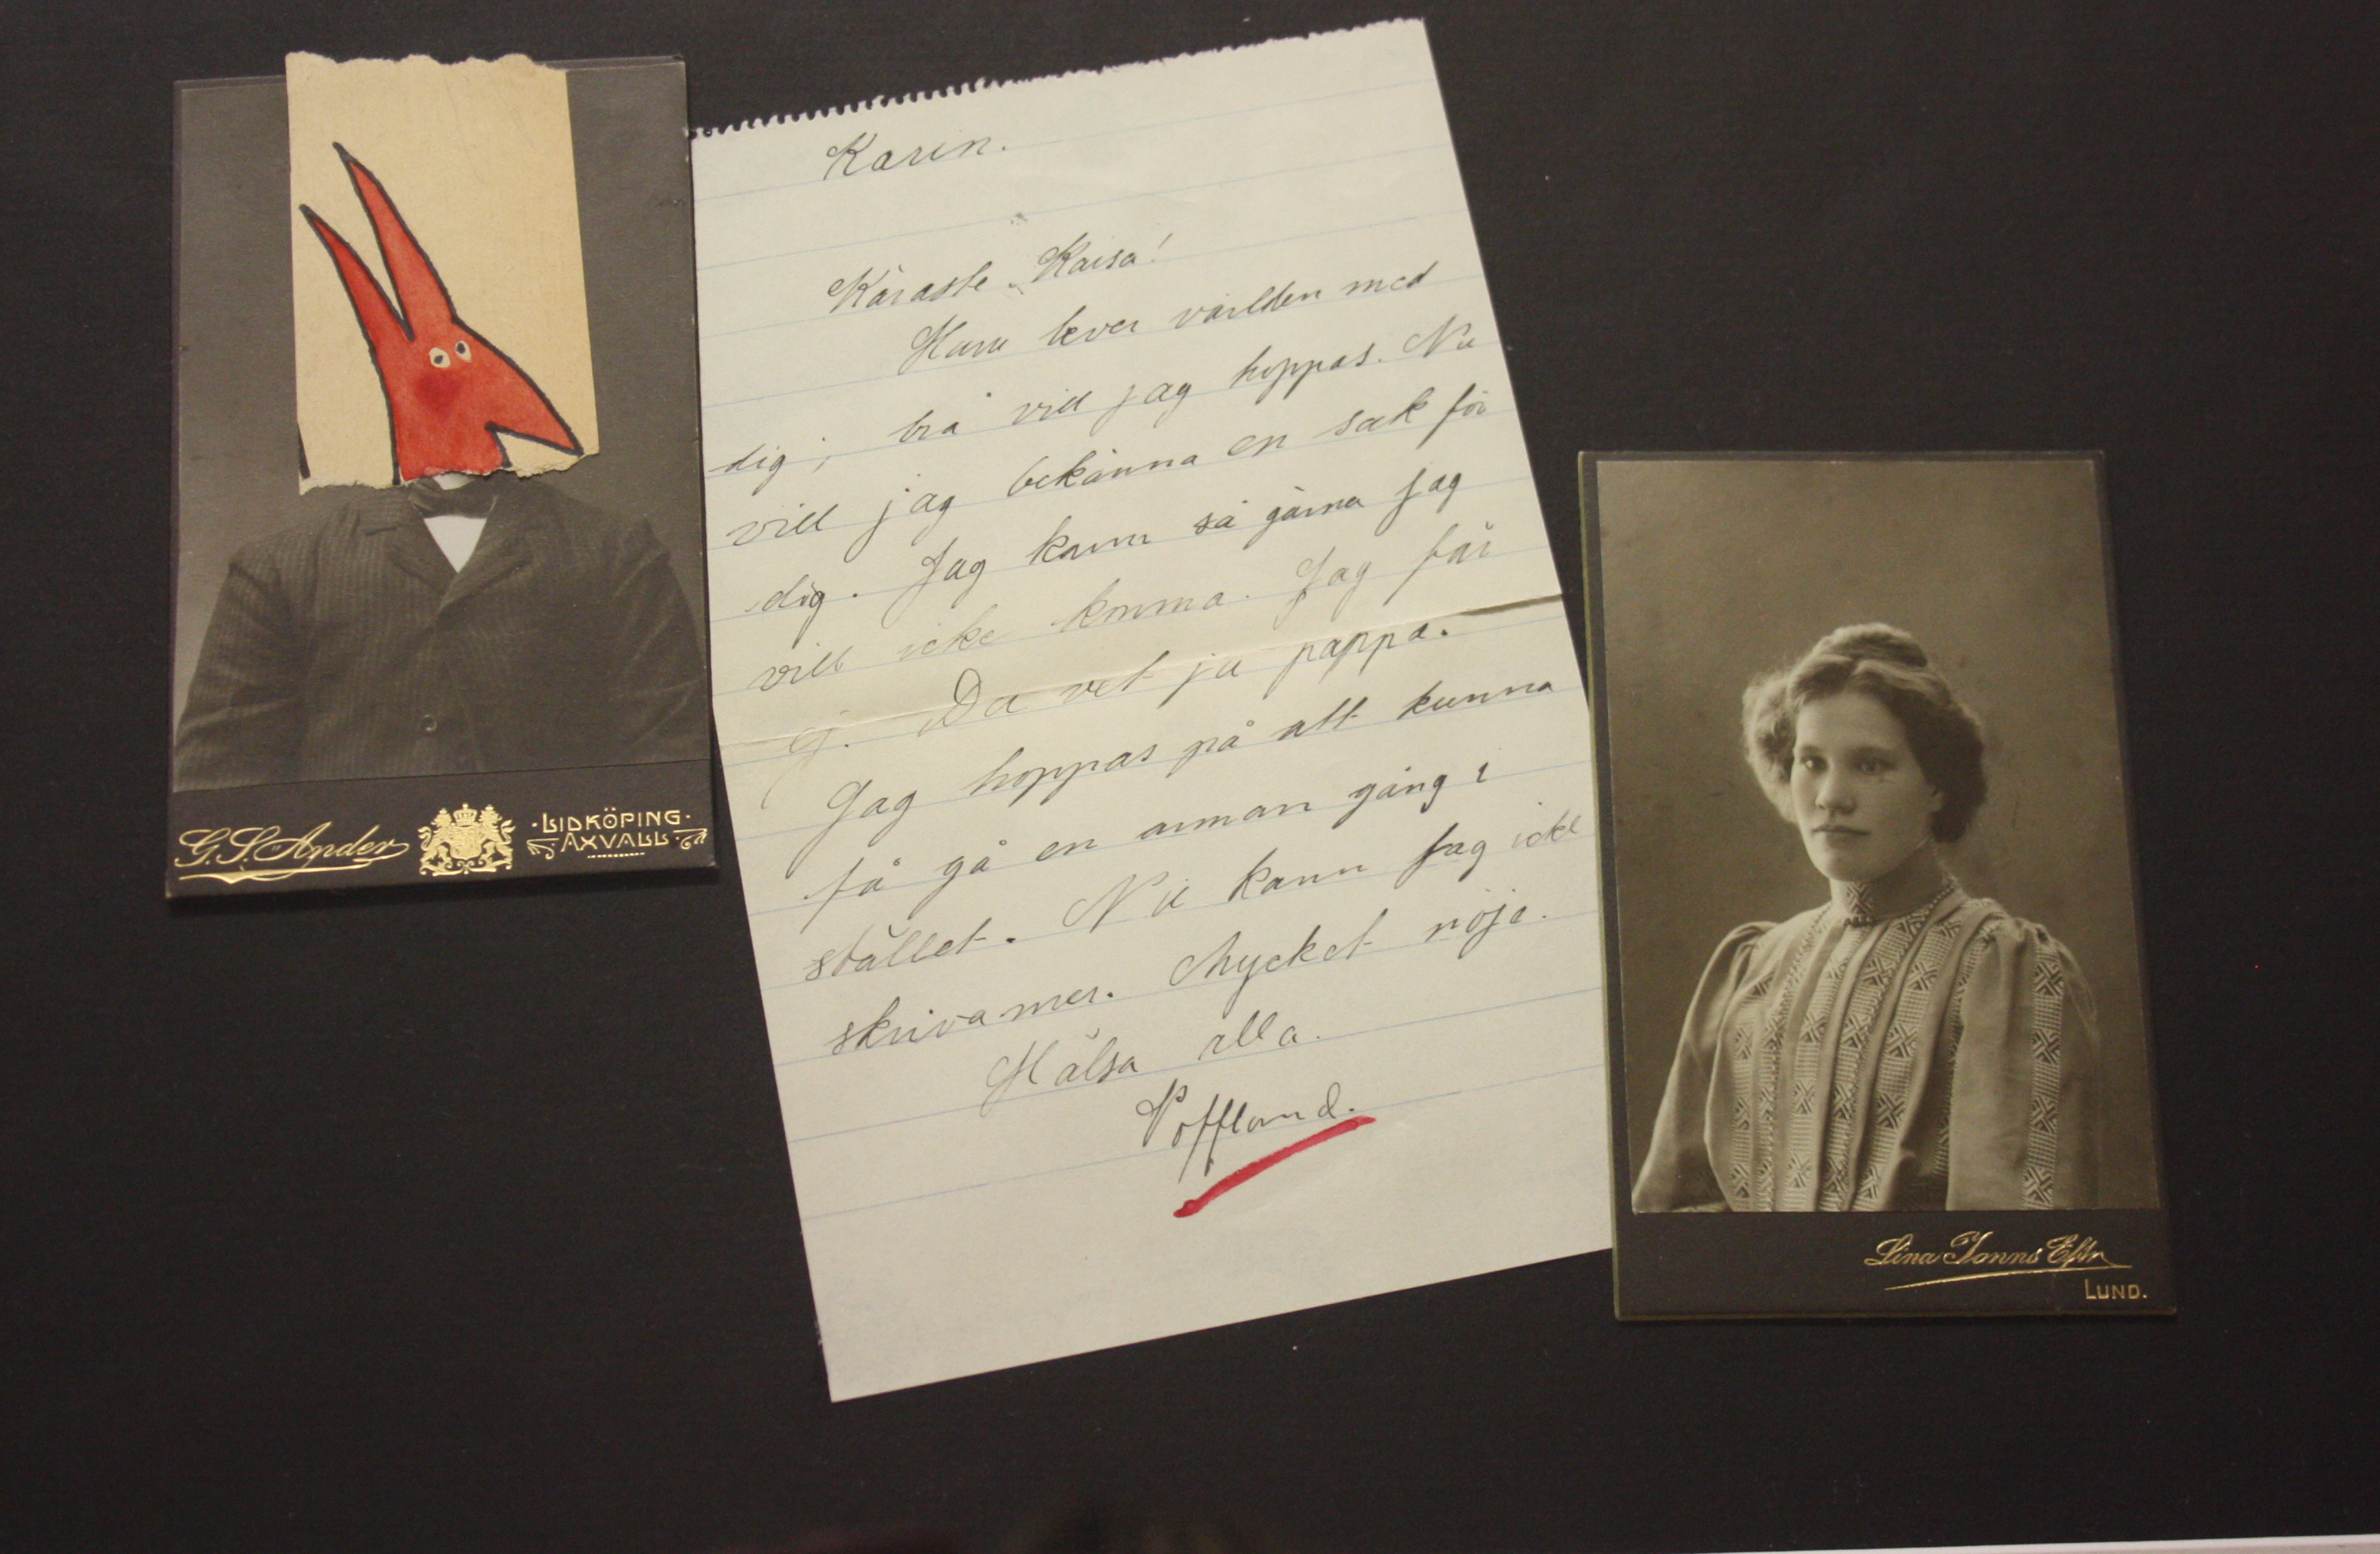 G. S. Ander
·LIDKÖPING·
AXVALL
Karin.
Käraste Kaisa!
Huru lever världen med
dig, bra vill jag hoppas. Nu
vill jag bekänna en sak för
dig. Jag kann så gärna jag
vill icke komma. Jag får
ej. Da vet ja pappa.
Jag hoppas på att kunna
få gå en annan gång i
stället. Nu kann jag icke
skriva mer. Mycket nöje.
Hälsa alla.
Poffland.
Lina Jonns Eftr
LUND.